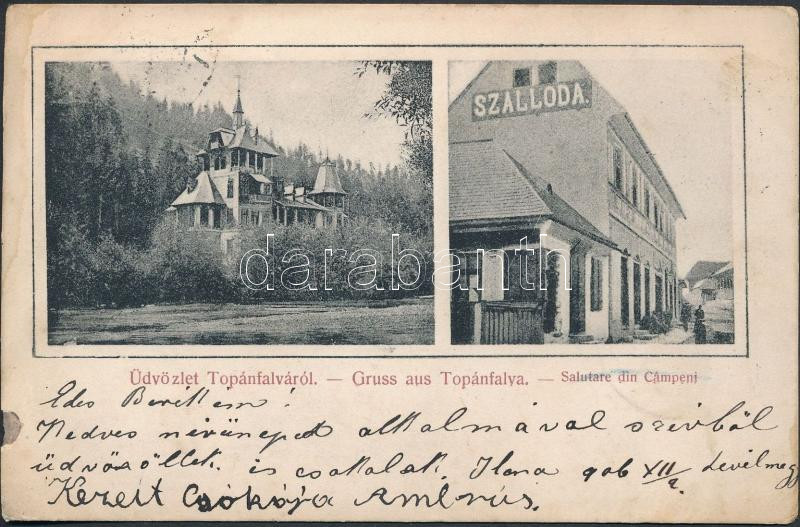 SZÁLLODA.
darabanth
Üdvözlet Topánfalváról. — Gruss aus Topánfalva. — Salutare din Câmpeni
Edes
Kedves alkalmával szívből
üdvözöllek és csókolak, Ilona 906 XII/2. Levél megy
Kezeit Csókója Ambrus.